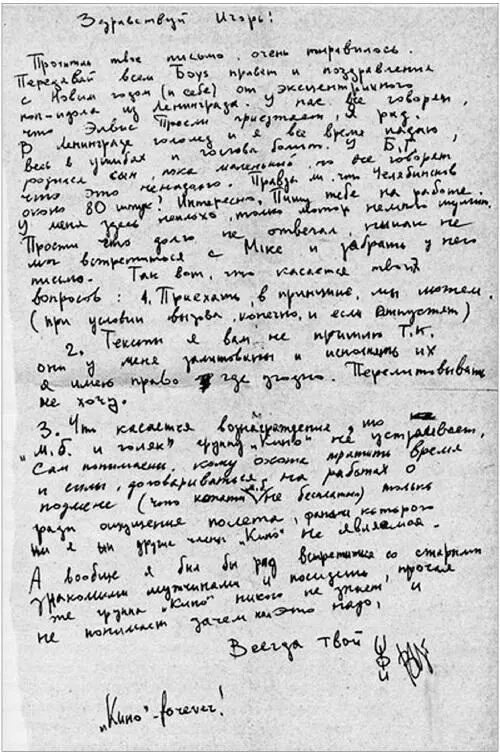 Здравствуй Игорь!
Прочитал твое письмо, очень понравилось.
Передавай всем Boys привет и поздравления
с Новым годом (и себе) от эксцентричного
поп-идола из Ленинграда. У нас все говорят,
что Элвис Пресли приезжает, я рад.
В Ленинграде гололед и я все время падаю,
весь в ушибах и голова болит. У Б.Г.
родился сын пока маленький, но все говорят
что это ненадолго. Правда ли, что Челябинсков
около 80 штук? Интересно. Пишу тебе на работе.
У меня здесь неплохо, только мотор немного шумит.
Прости что долго не отвечал, никак не
мог встретиться с Mike и забрать у него
письмо. Так вот, что касается твоих
вопросов: 1. Приехать, в принципе, мы можем.
(при условии вызова, конечно, и если отпустят)
2. Тексты я вам не пришлю т.к.
они у меня залитованы и исполнять их
я имею право где угодно. Перелитовывать
не хочу.
3. Что касается вознаграждения, то
"М.Б. и голяк" группу "Кино" не устраивает,
Сам понимаешь, кому охота тратить время
и силы, договариваться на работах о
подмене (что кстати м.б. не бесплатно) только
ради ощущения полета, фаном которого
ни я ни другие члены "Кино" не являемся.
А вообще я был бы рад встретиться со старыми
знакомыми мужчинами и посидеть, прочая
же группа "Кино" никого не знает, и
не понимает зачем ей это надо,
Всегда твой
"Кино"-forever!